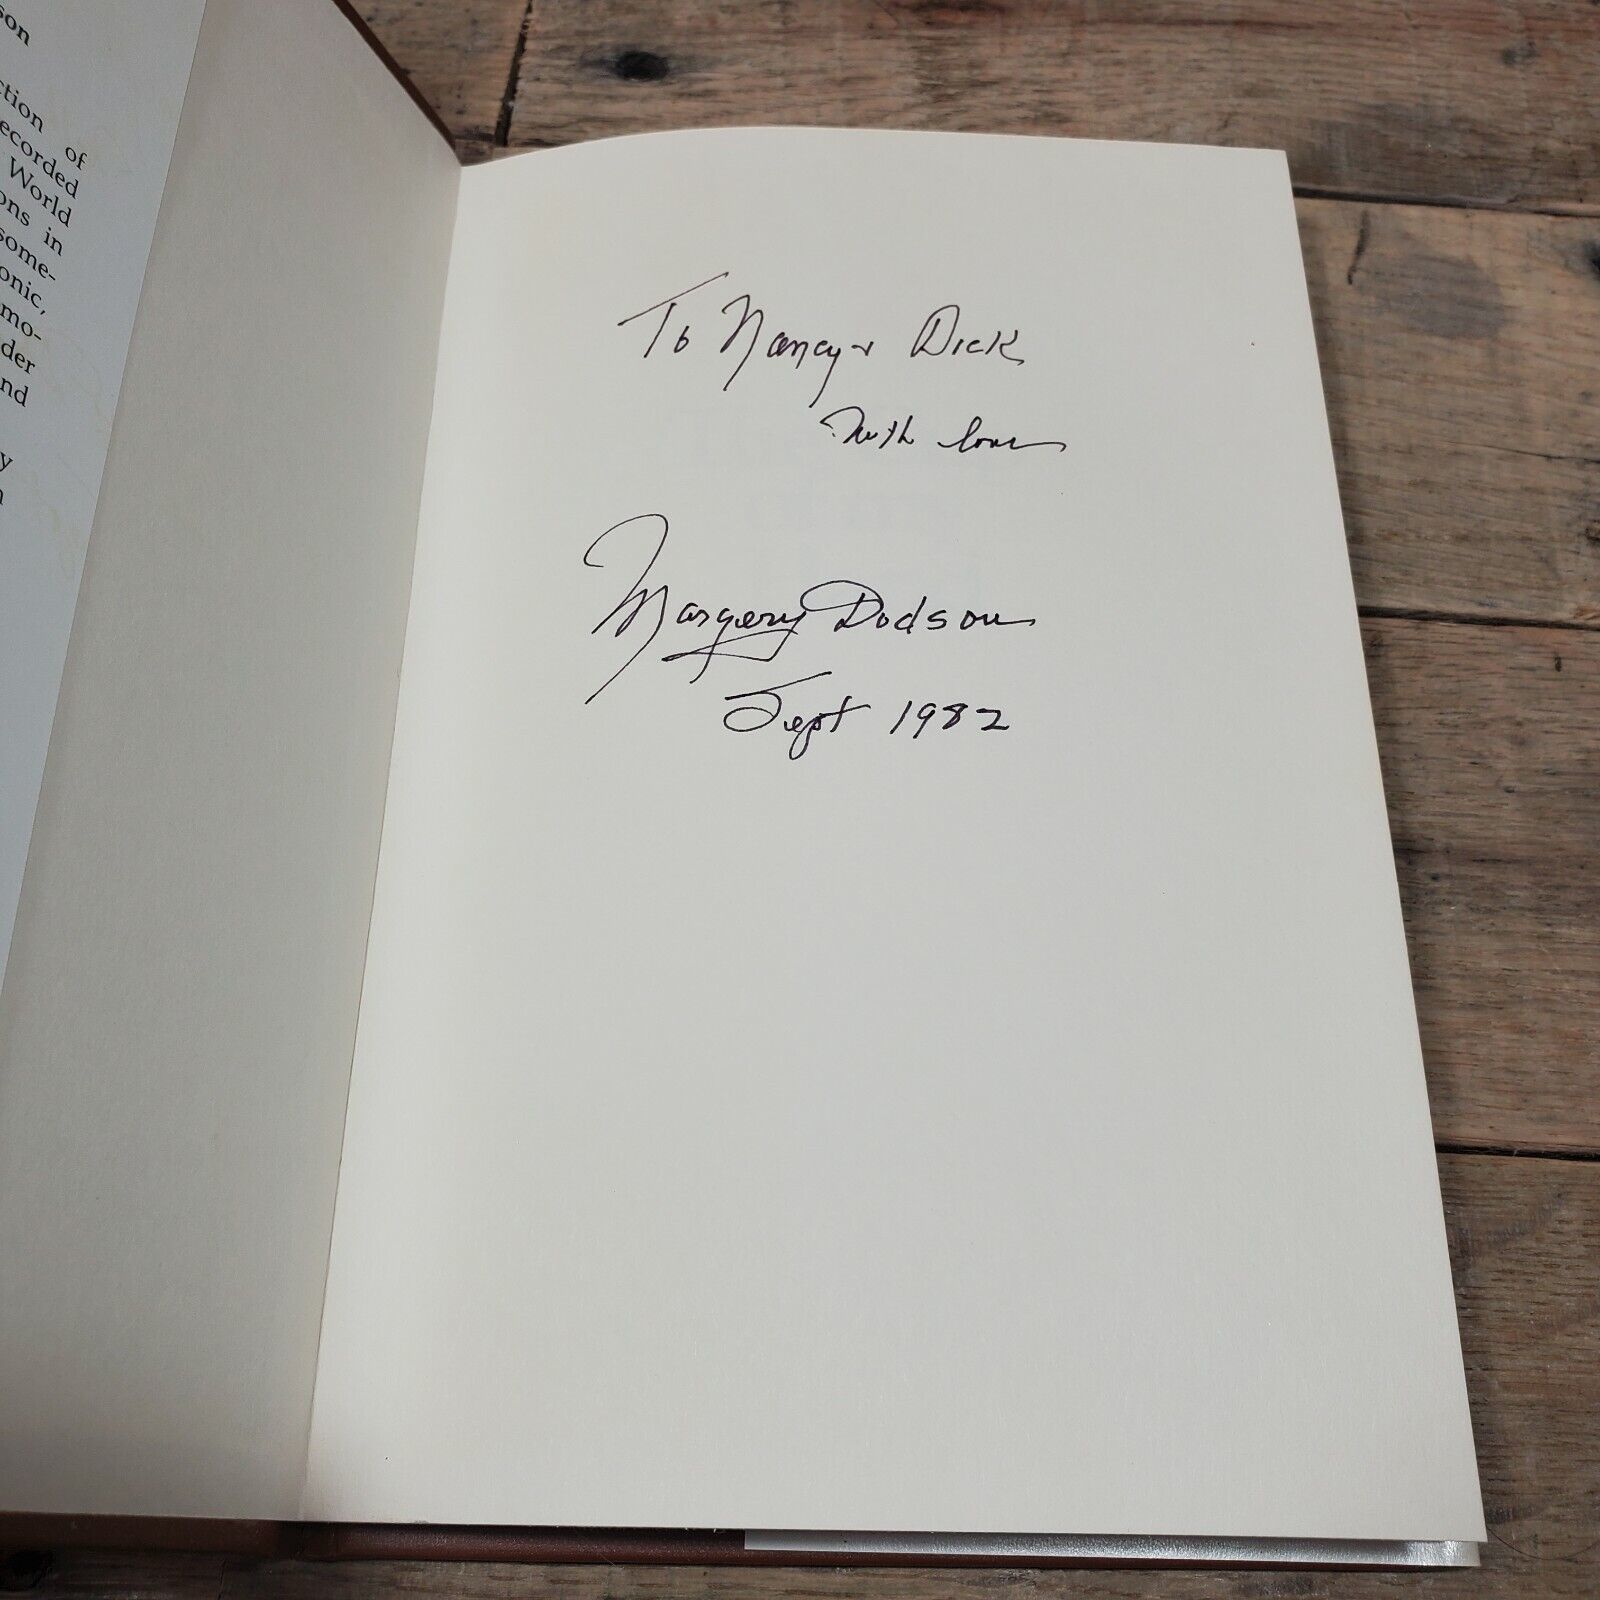 son
ction of
ecorded
World
ons in
some-
onic,
mo-
der
nd
y
n
To Nancy + Dick
With love
Margery Dodson
Sept 1982